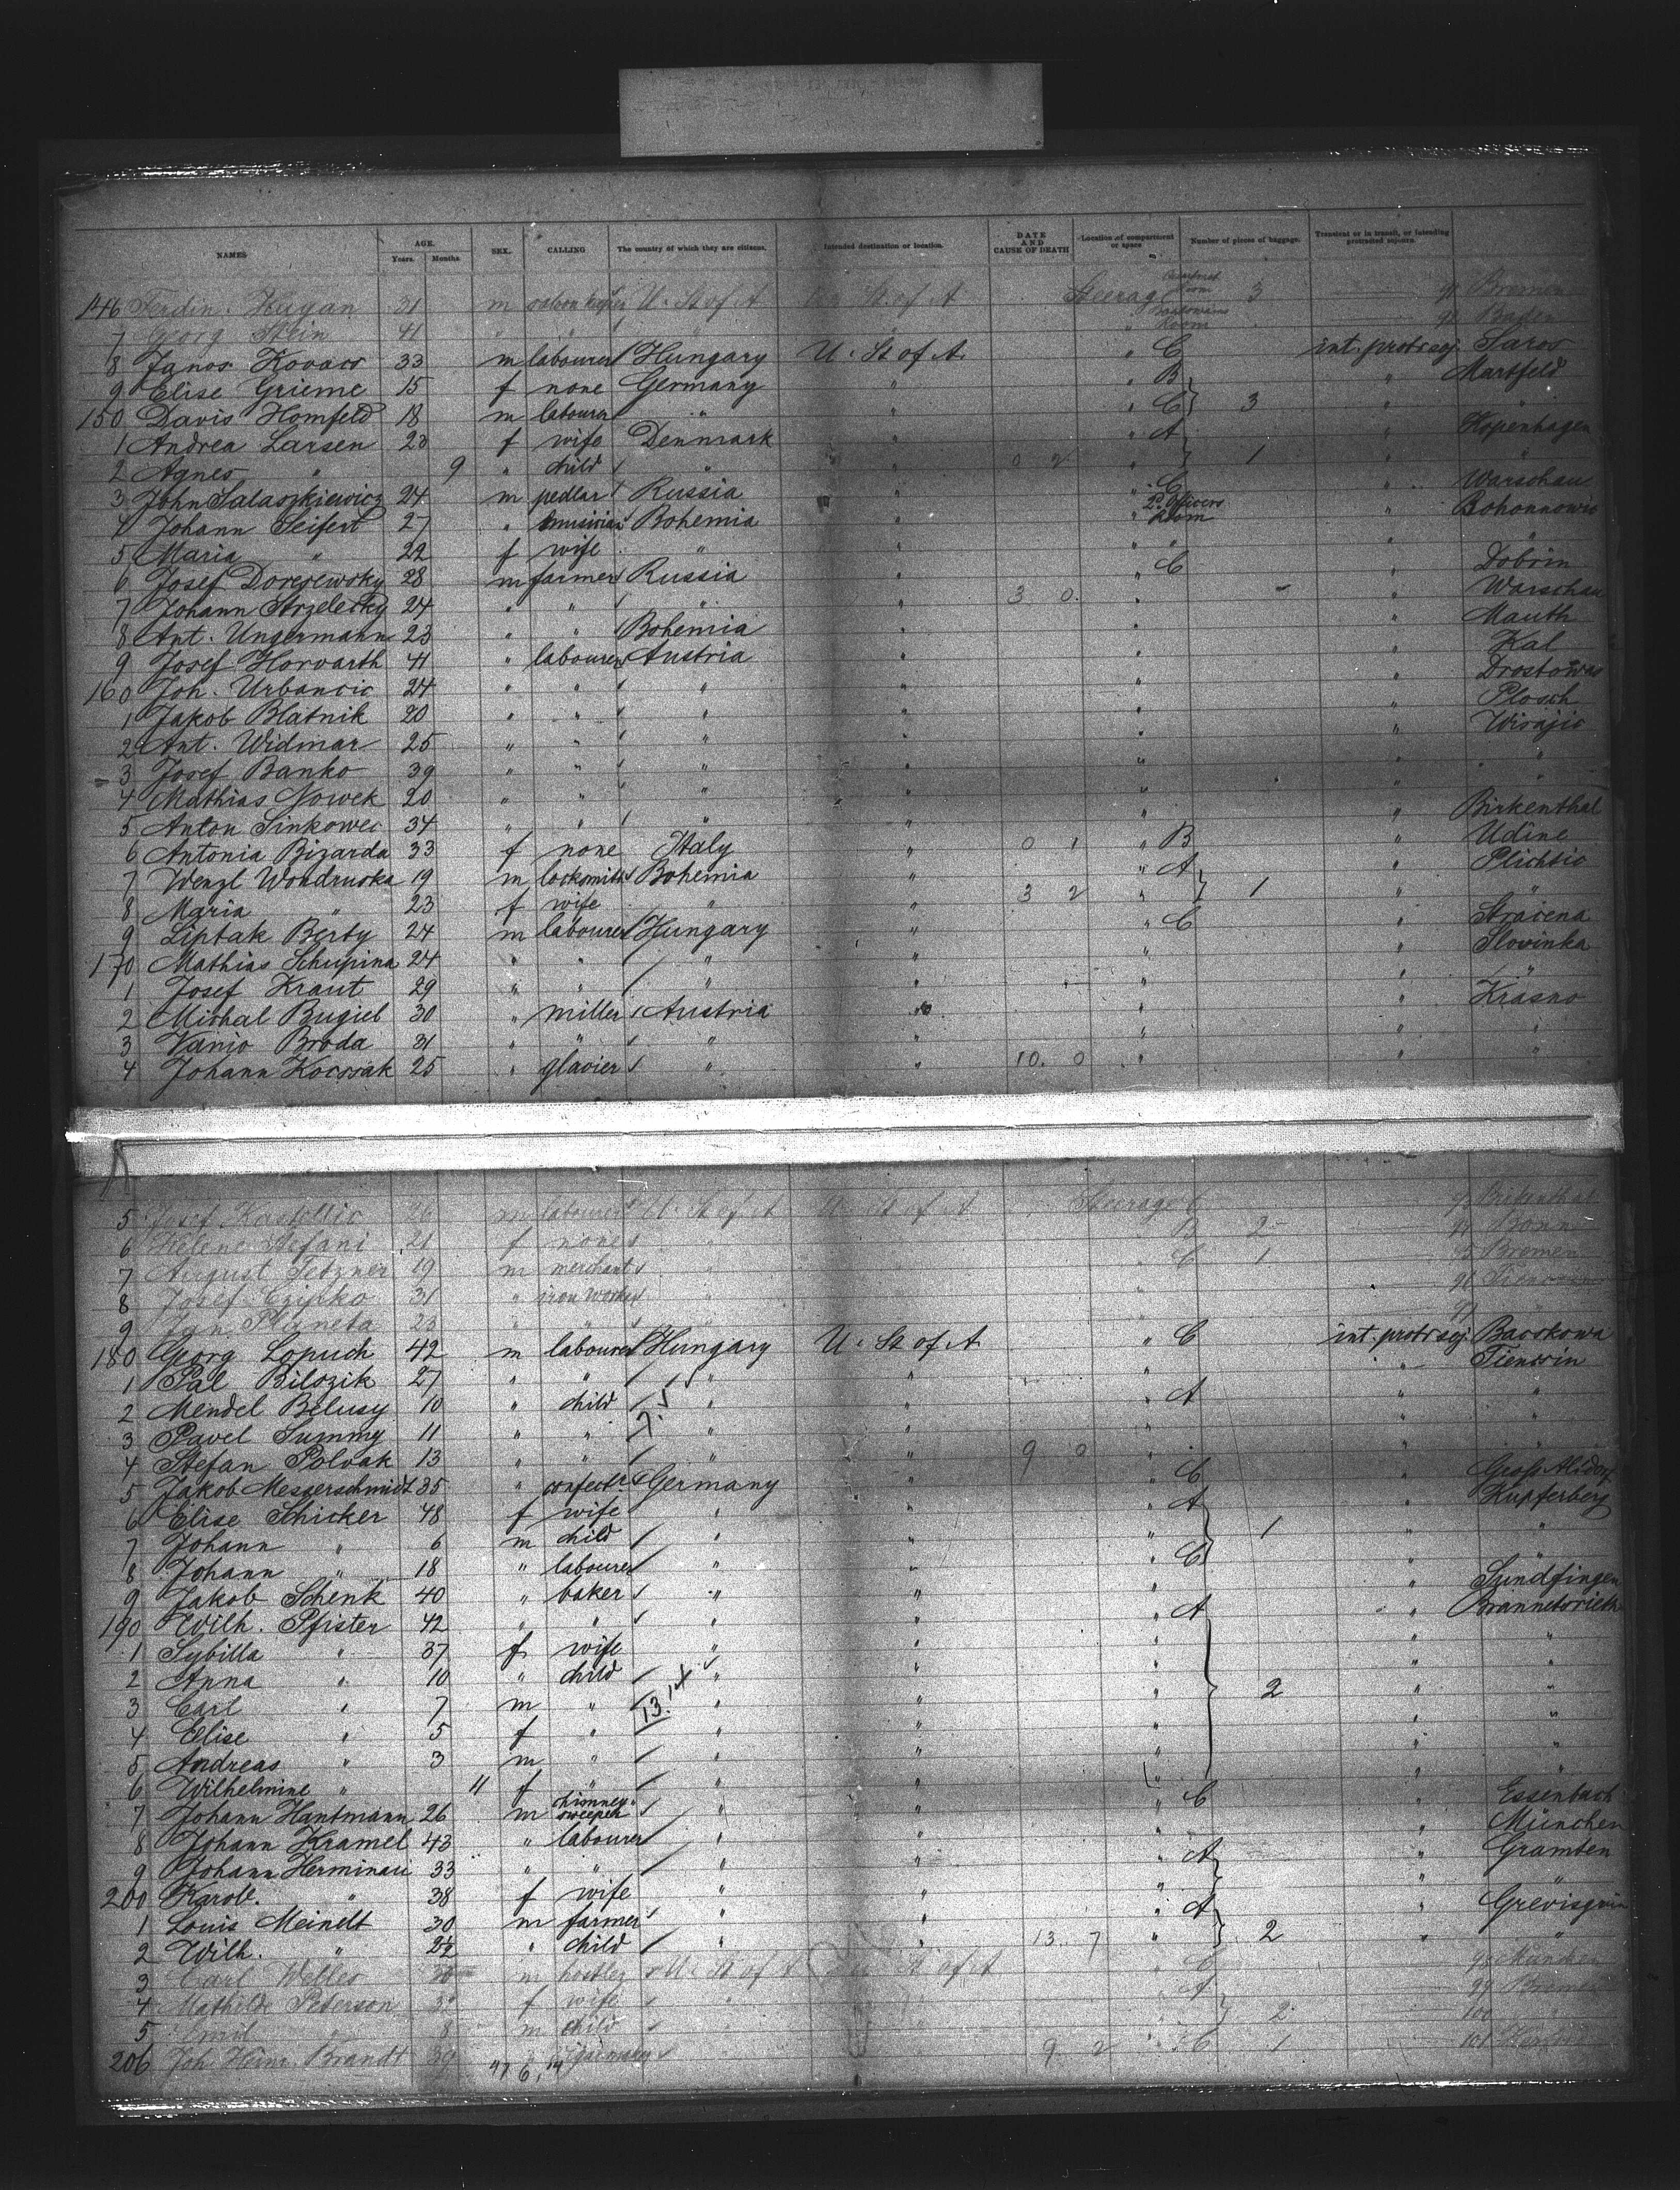 NAMES AGE. Years. Months. SEX. CALLING The country of which they are citizens. Intended destination or location. DATE AND CAUSE OF DEATH Location of compartment or space Number of pieces of baggage. Transient or in transit, or intending protracted sojourn.
146 Ferdin. Hugan 31 m U. St of A St of A Steerage 3 91 Bremen
7 Georg Stein 41 " " " " Room 92 Baden
8 Janos Kovacs 33 m labourer Hungary U. St of A. " C int. protr sej. Saros
9 Elise Grieme 15 f none Germany " " B " Martfeld
150 Davis Homfeld 18 m labourer " " " C 3 " "
1 Andrea Larsen 23 f wife Denmark " " A " Kopenhagen
2 Agnes " 9 " child " " 0 2 " 1 " "
3 John Salaszkiewicz 24 m pedlar Russia " " C " Warschau
4 Johann Seifert 27 " musician Bohemia " " 2d Officers Room "
5 Maria " 22 f wife " " " " " "
6 Josef Doresewsky 28 m farmer Russia " " C " Dobrin
7 Johann Strzelecky 24 " " " " 3 0. " " Warschau
8 Ant. Ungermann 23 " " Bohemia " " " Mauth
9 Josef Horvarth 41 " labourer Austria " " " Kal
160 Joh. Urbancic 24 " " " " " " Drostowas
1 Jakob Blatnik 20 " " " " " " Plosch
2 Ant. Widmar 25 " " " " " " Wisajic
3 Josef Banko 39 " " " " " " "
4 Mathias Nowek 20 " " " " " " "
5 Anton Sinkowec 34 " " " " " " Birkenthal
6 Antonia Bizarda 33 f none Italy " 0 1 " B " Udine
7 Wenzl Wondruska 19 m locksmith Bohemia " " A " Plichtic
8 Maria " 23 f wife " " 3 2 " 1 " "
9 Liptak Berty 24 m labourer Hungary " " C " Stracena
170 Mathias Schupina 24 " " " " " " Slovinka
1 Josef Kraut 29 " " " " " " "
2 Michal Bugiel 30 " miller Austria " " " Krasno
3 Vanio Broda 31 " " " " " " "
4 Johann Kocssak 25 " glacier " " 10. 0 " " "
5 Josef Kastellic 26 m labourer U. St of A U. St of A Steerage C 92 Birkenthal
6 Helene Stefani 21 f none " " " B 2 94 Bonn
7 August Setzner 19 m merchant " " " C 1 95 Bremen
8 Josef Czipko 31 " iron worker " " " 96
9 Jan Planeta 23 " " " " " 97
180 Georg Lopuch 42 m labourer Hungary U. St of A. " C int. protr sej. Bacskowa
1 Pal Bilozik 27 " " " " " " Tienczin
2 Mendel Belusy 10 " child " " " A " "
3 Pavel Summy 11 " " " " " " "
4 Stefan Polvak 13 " " " " 9 0 " " "
5 Jakob Messerschmidt 35 " confectr Germany " " C " Gross Alsdorf
6 Elise Schicker 48 f wife " " " A " Kupferberg
7 Johann " 6 m child " " " 1 " "
8 Johann " 18 " labourer " " " C " "
9 Jakob Schenk 40 " baker " " " " Sündfingen
190 Wilh. Pfister 42 " " " " " A "
1 Sybilla " 37 f wife " " " " "
2 Anna " 10 " child " " " " "
3 Carl " 7 m " 13.14 " " " 2 " "
4 Elise " 5 f " " " " " "
5 Andreas " 3 m " " " " " "
6 Wilhelmine " 11 f " " " " " "
7 Johann Hantmann 26 m chimney-sweeper " " " C " Essenbach
8 Johann Kramel 43 " labourer " " " " München
9 Johann Herminau 33 " " " " " A " Gramten
200 Karol. " 38 f wife " " " " "
1 Louis Meinelt 30 m farmer " " " A "
2 Wilh. " 2½ " child " " 13. 7 " 2 " "
3 Carl Welles 30 m hostler U. St of A St of A " C 98 München
4 Mathilde Peterson 3 f wife " " " A 99 Bremen
5 Emil " 8 m child " " " 2 100
206 Joh. Heinr. Brandt 39 " " 9 2 " C 1 101
47 6. 14